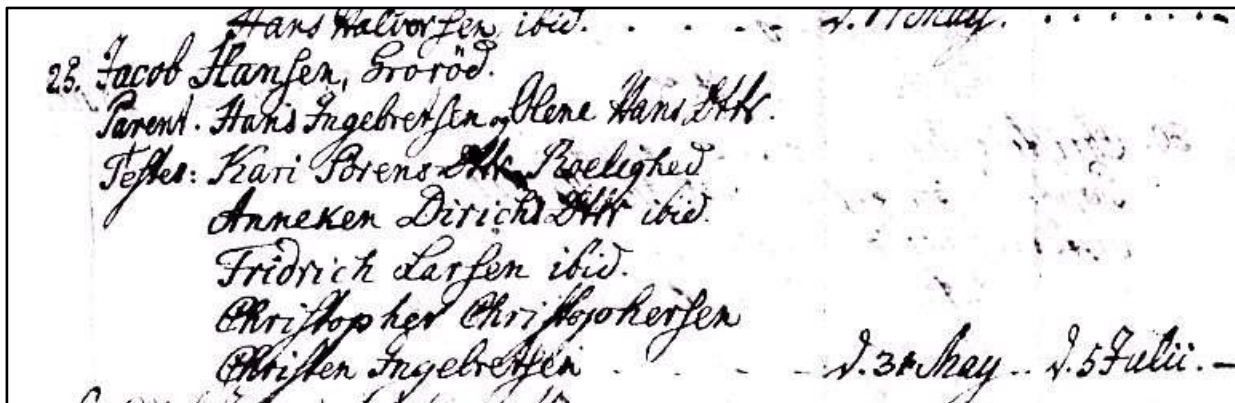 Hans Halvorsen ibid. . . . d. 17 May. . . . . . .
25. Jacob Hansen, Groröd.
Parent. Hans Ingebretsen og Olene Hans Dttr.
Testes: Kari Sörens Dttr. Roelighed
Anneken Dirichs Dttr ibid.
Fridrich Larsen ibid.
Christopher Christophersen
Christen Ingebretsen . . . d. 31 May . . d. 5 Julii. —